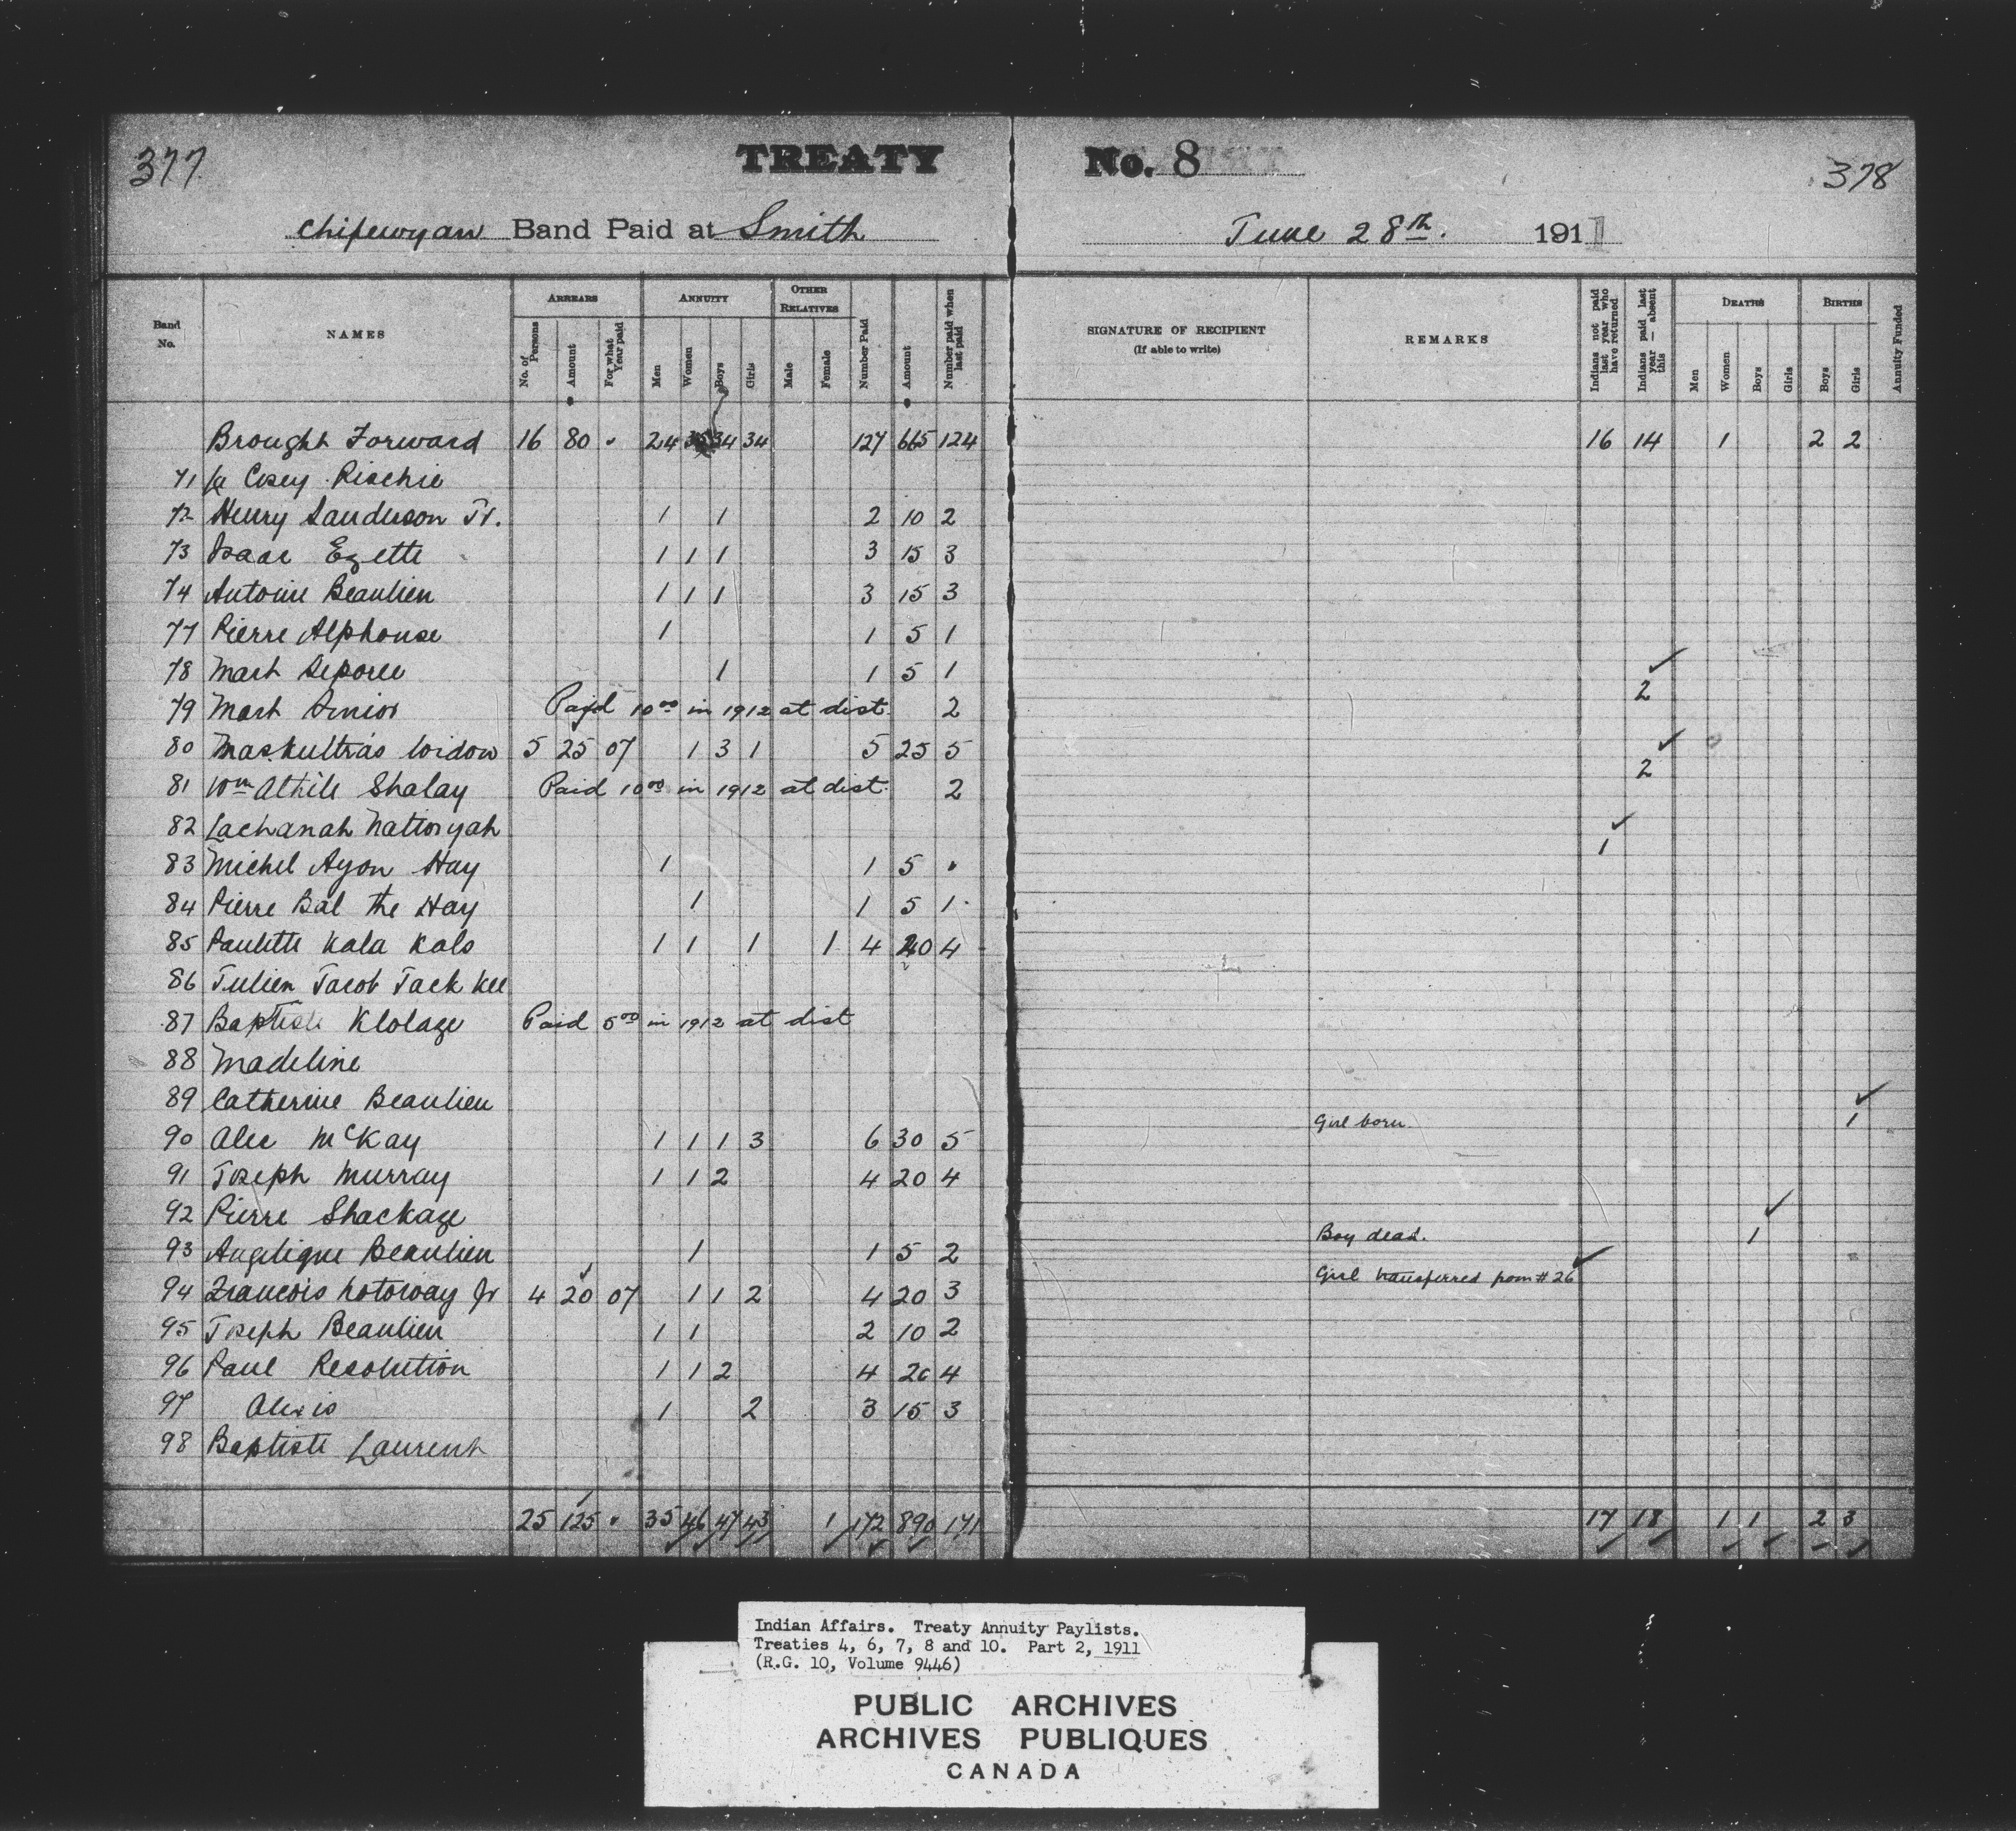 377
TREATY No. 8
378
Chipewyan Band Paid at Smith June 28th. 1911
Band No. NAMES ARREARS ANNUITY OTHER RELATIVES Number Paid Amount Number paid when last paid SIGNATURE OF RECIPIENT (If able to write) REMARKS Indians not paid last year who have returned Indians paid last year — absent this DEATHS BIRTHS Annuity Funded
No. of Persons Amount For what Year paid Men Women Boys Girls Male Female Men Women Boys Girls Boys Girls
Brought Forward 16 80 24 34 34 127 665 124 16 14 1 2 2
71 Casey Rischie
72 Henry Sanderson Jr. 1 1 2 10 2
73 Isaac Ezette 1 1 1 3 15 3
74 Antoine Beaulieu 1 1 1 3 15 3
77 Pierre Alphonse 1 1 5 1
78 Mart Seporee 1 1 5 1
79 Mart Junior Paid 10.00 in 1912 at dist. 2 2
80 Maskultra's Widow 5 25 07 1 3 1 5 25 5
81 Wm Athile Shalay Paid 10.00 in 1912 at dist. 2 2
82 Lachanah Natiosyah
83 Michel Ayon Hay 1 1 5 1
84 Pierre Bal the Hay 1 1 5 1
85 Paulette Kala Kalo 1 1 1 1 4 20 4
86 Julien Jacob Jack Kee
87 Baptiste Klolaze Paid 5.00 in 1912 at dist
88 Madeline
89 Catherine Beaulieu
90 Alec McKay 1 1 1 3 6 30 5 Girl born 1
91 Joseph Murray 1 1 2 4 20 4
92 Pierre Shackaze
93 Angelique Beaulieu 1 1 5 2 Boy dead. 1
94 Francois Kotorway Jr 4 20 07 1 1 2 4 20 3 Girl transferred from # 26
95 Joseph Beaulieu 1 1 2 10 2
96 Paul Resolution 1 1 2 4 20 4
97 Alexis 1 2 3 15 3
98 Baptiste Laurent
25 125 35 46 47 43 1 172 890 171 17 18 1 1 2 3
Indian Affairs. Treaty Annuity Paylists.
Treaties 4, 6, 7, 8 and 10. Part 2, 1911
(R.G. 10, Volume 9446)
PUBLIC ARCHIVES
ARCHIVES PUBLIQUES
CANADA